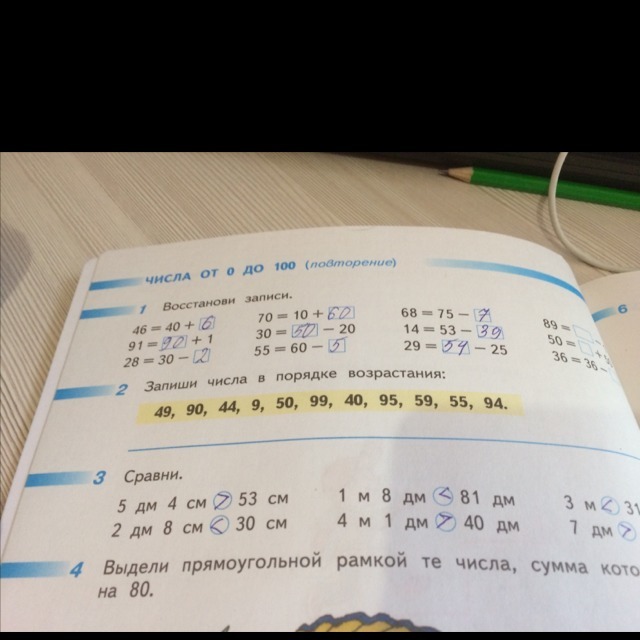 ЧИСЛА ОТ 0 ДО 100 (повторение)
1 Восстанови записи.
46 = 40 + 6 70 = 10 + 60 68 = 75 − 7 89 =
91 = 90 + 1 30 = 50 − 20 14 = 53 − 39 50 = +
28 = 30 − 2 55 = 60 − 5 29 = 54 − 25 36 = 36 −
6
2 Запиши числа в порядке возрастания:
49, 90, 44, 9, 50, 99, 40, 95, 59, 55, 94.
3 Сравни.
5 дм 4 см > 53 см 1 м 8 дм < 81 дм 3 м < 31
2 дм 8 см < 30 см 4 м 1 дм > 40 дм 7 дм >
4 Выдели прямоугольной рамкой те числа, сумма кото
на 80.